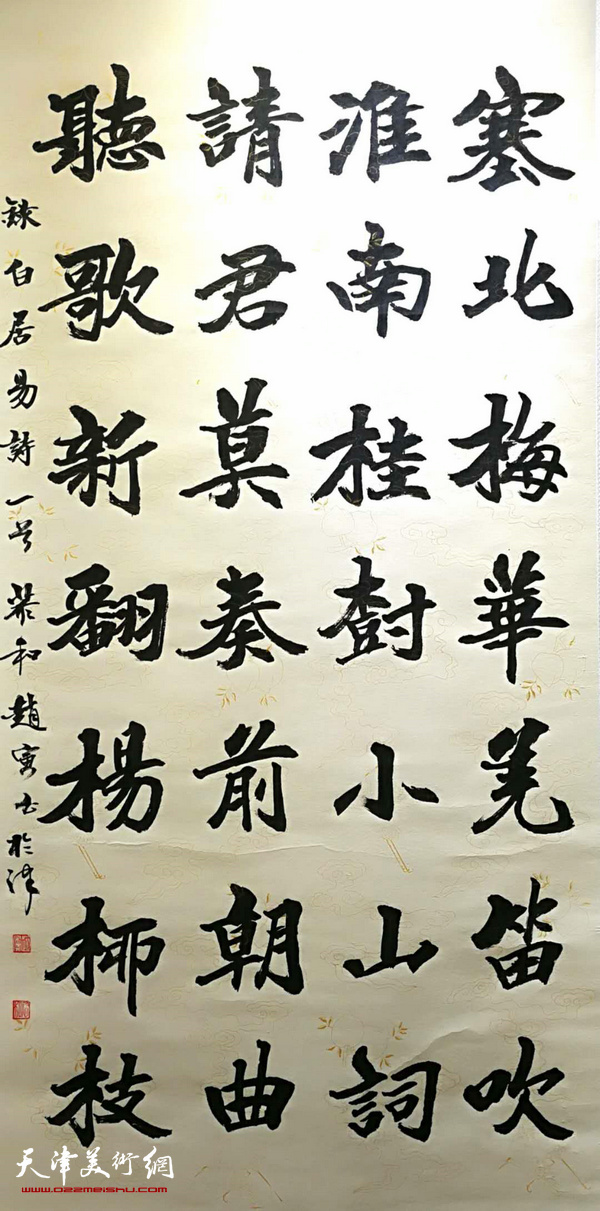 塞北梅華羌笛吹
淮南桂樹小山詞
請君莫奏前朝曲
聽歌新翻楊柳枝
錄白居易詩一首 恭和趙寅书於津
天津美術網
www.022meishu.com